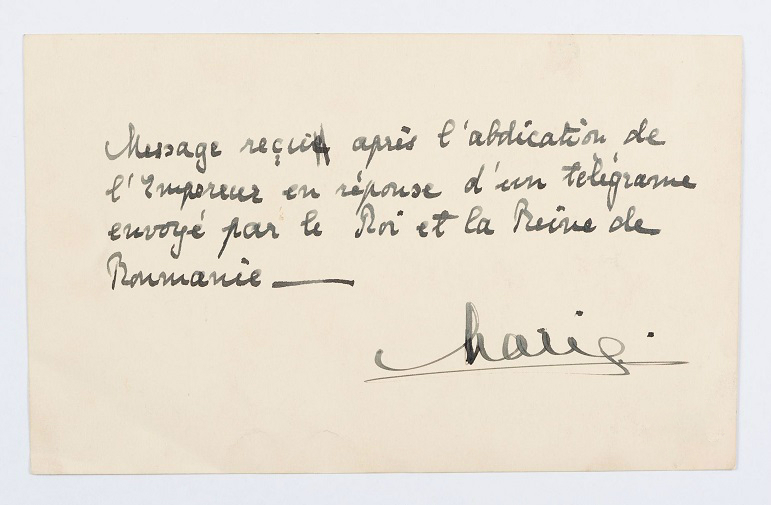 Message reçu après l'abdication de
l'Empereur en réponse d'un télégrame
envoyé par le Roi et la Reine de
Roumanie —
Marie.